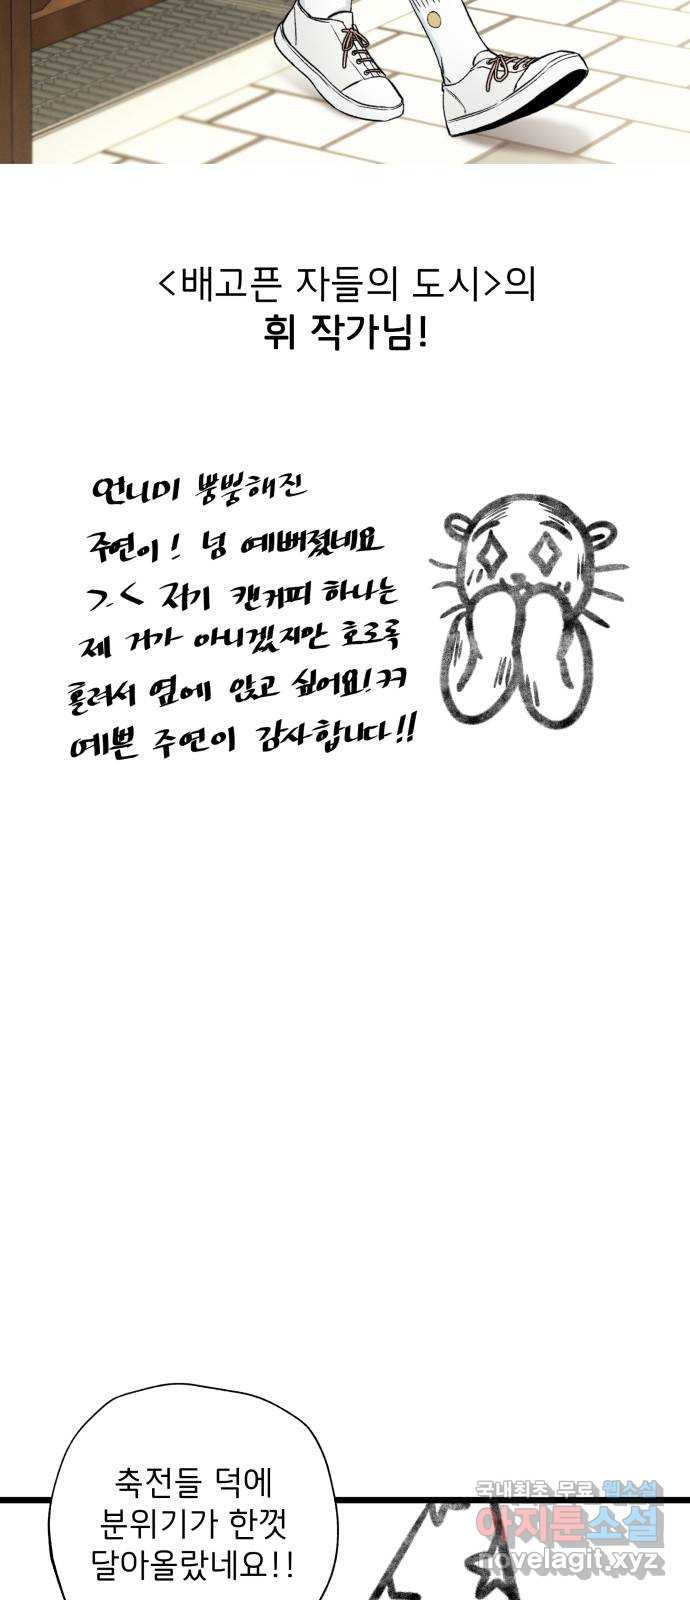 <배고픈 자들의 도시>의
휘 작가님!
언니미 뿜뿜해진
주연이! 넘 예뻐졌네요
>.< 저기 캔커피 하나는
제 거가 아니겠지만 호로록
홀려서 옆에 앉고 싶어요!ㅋㅋ
예쁜 주연이 감사합니다!!
축전들 덕에
분위기가 한껏
달아올랐네요!!
국내최초 무료 웹소설
아지툰소설
novelagit.xyz